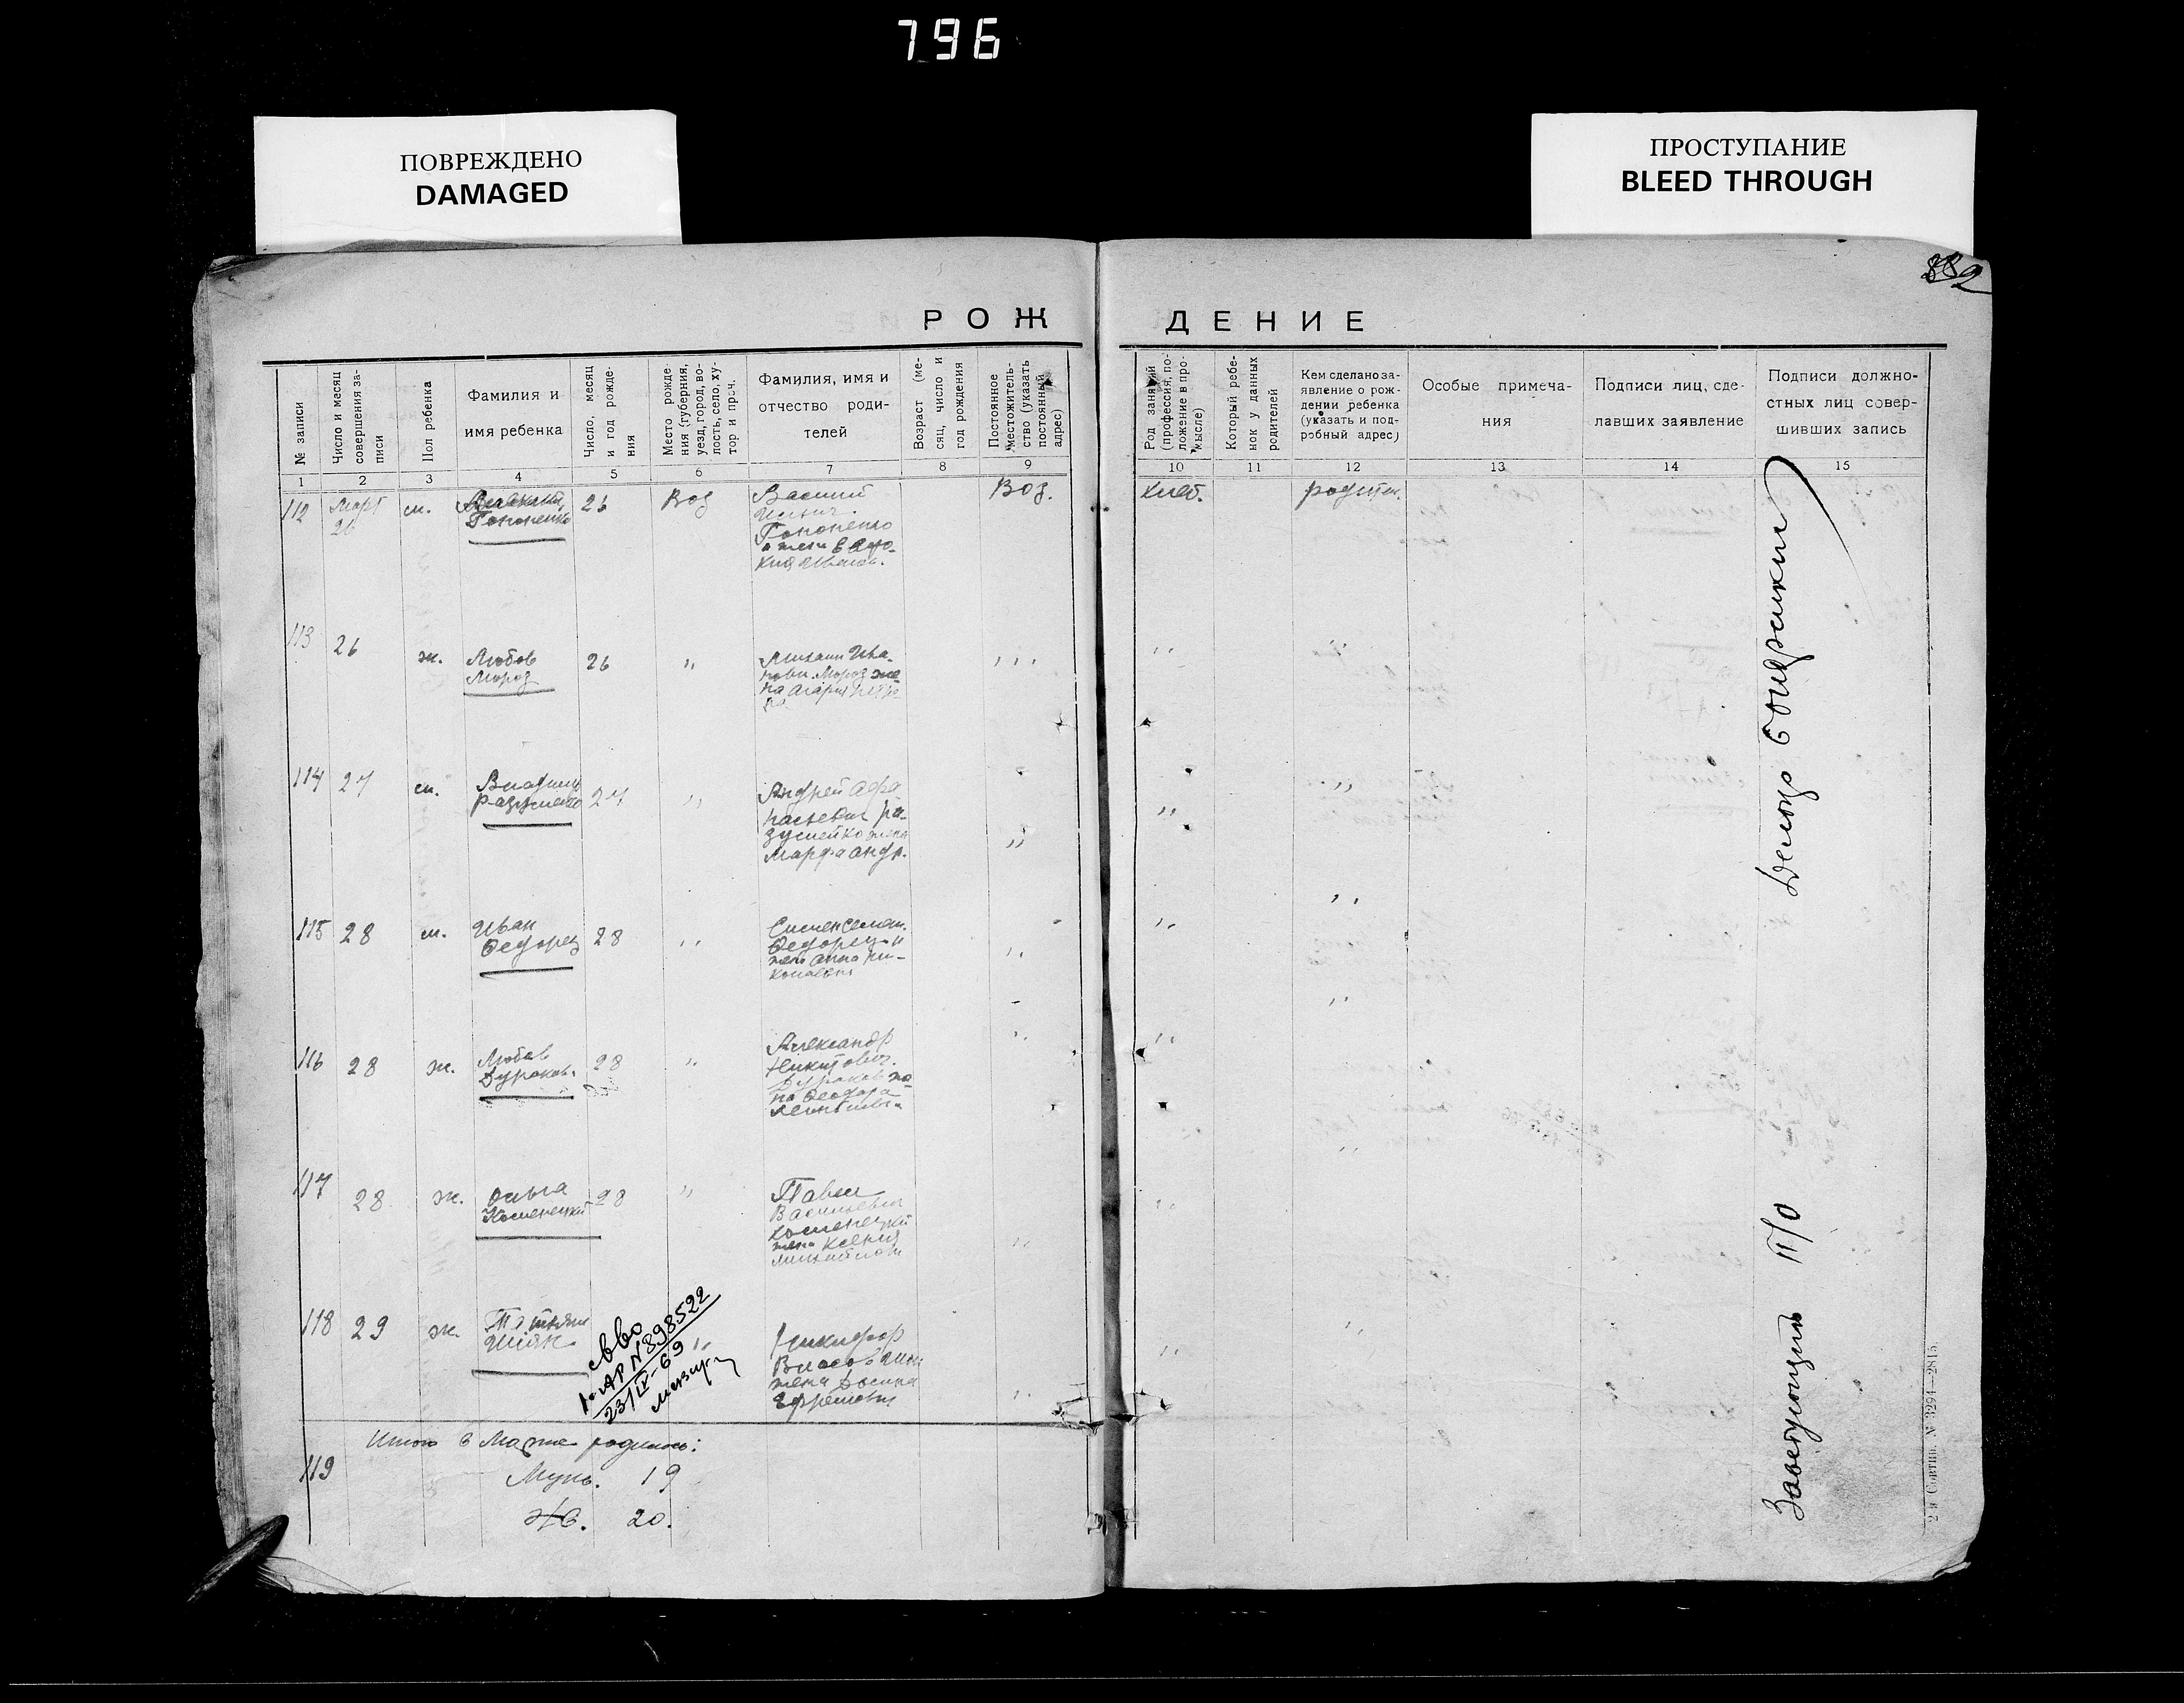 796
ПОВРЕЖДЕНО
DAMAGED
ПРОСТУПАНИЕ
BLEED THROUGH
РОЖДЕНИЕ
№ записи
Число и месяц совершения записи
Пол ребенка
Фамилия и
имя ребенка
Число, месяц и год рождения
Место рождения (губерния, уезд, город, волость, село, хутор и проч.
Фамилия, имя и
отчество роди-
телей
Возраст (месяц, число и год рождения
Постоянное местожительство (указать постоянный адрес)
Род занятий (профессия, положение в промысле)
Который ребенок у данных родителей
Кем сделано за-
явление о рож-
дении ребенка
(указать и под-
робный адрес)
Особые примеча-
ния
Подписи лиц, сде-
лавших заявление
Подписи должно-
стных лиц совер-
шивших запись
1 2 3 4 5 6 7 8 9 10 11 12 13 14 15
112 Март 26 м. 26 Воз Василий
Гопоненко
Воз. хлеб. родител.
113 26 ж. Любов
Мороз
26 " Михаил Ива-
нови. Мороз же-
на
114 27 м. 27 " Андрей Афа
насьевич Ра-
зумейко жена
Марфа Андр.
115 28 м. Иван
Федорец
28 " Семен Семен.
Федорец и
жена Анна Ни-
колаевна
116 28 ж. Любов
Дураков.
28 " Александр
Никитович.
Дураков же-
на Феодора
117 28 ж. Ольга
28 " Павел
Васильевич
жена Ксения
Михайлов
118 29 ж. Татьяна
" Никифор
Власов
жена
Ефремовна
св во
1-АР № 898522
23/IV-69
119 Итого в Марте родилось:
Муж. 19
Жв. 20.
Заведующий П/О
Делопр
2-я Совтип. № 3294—2815.